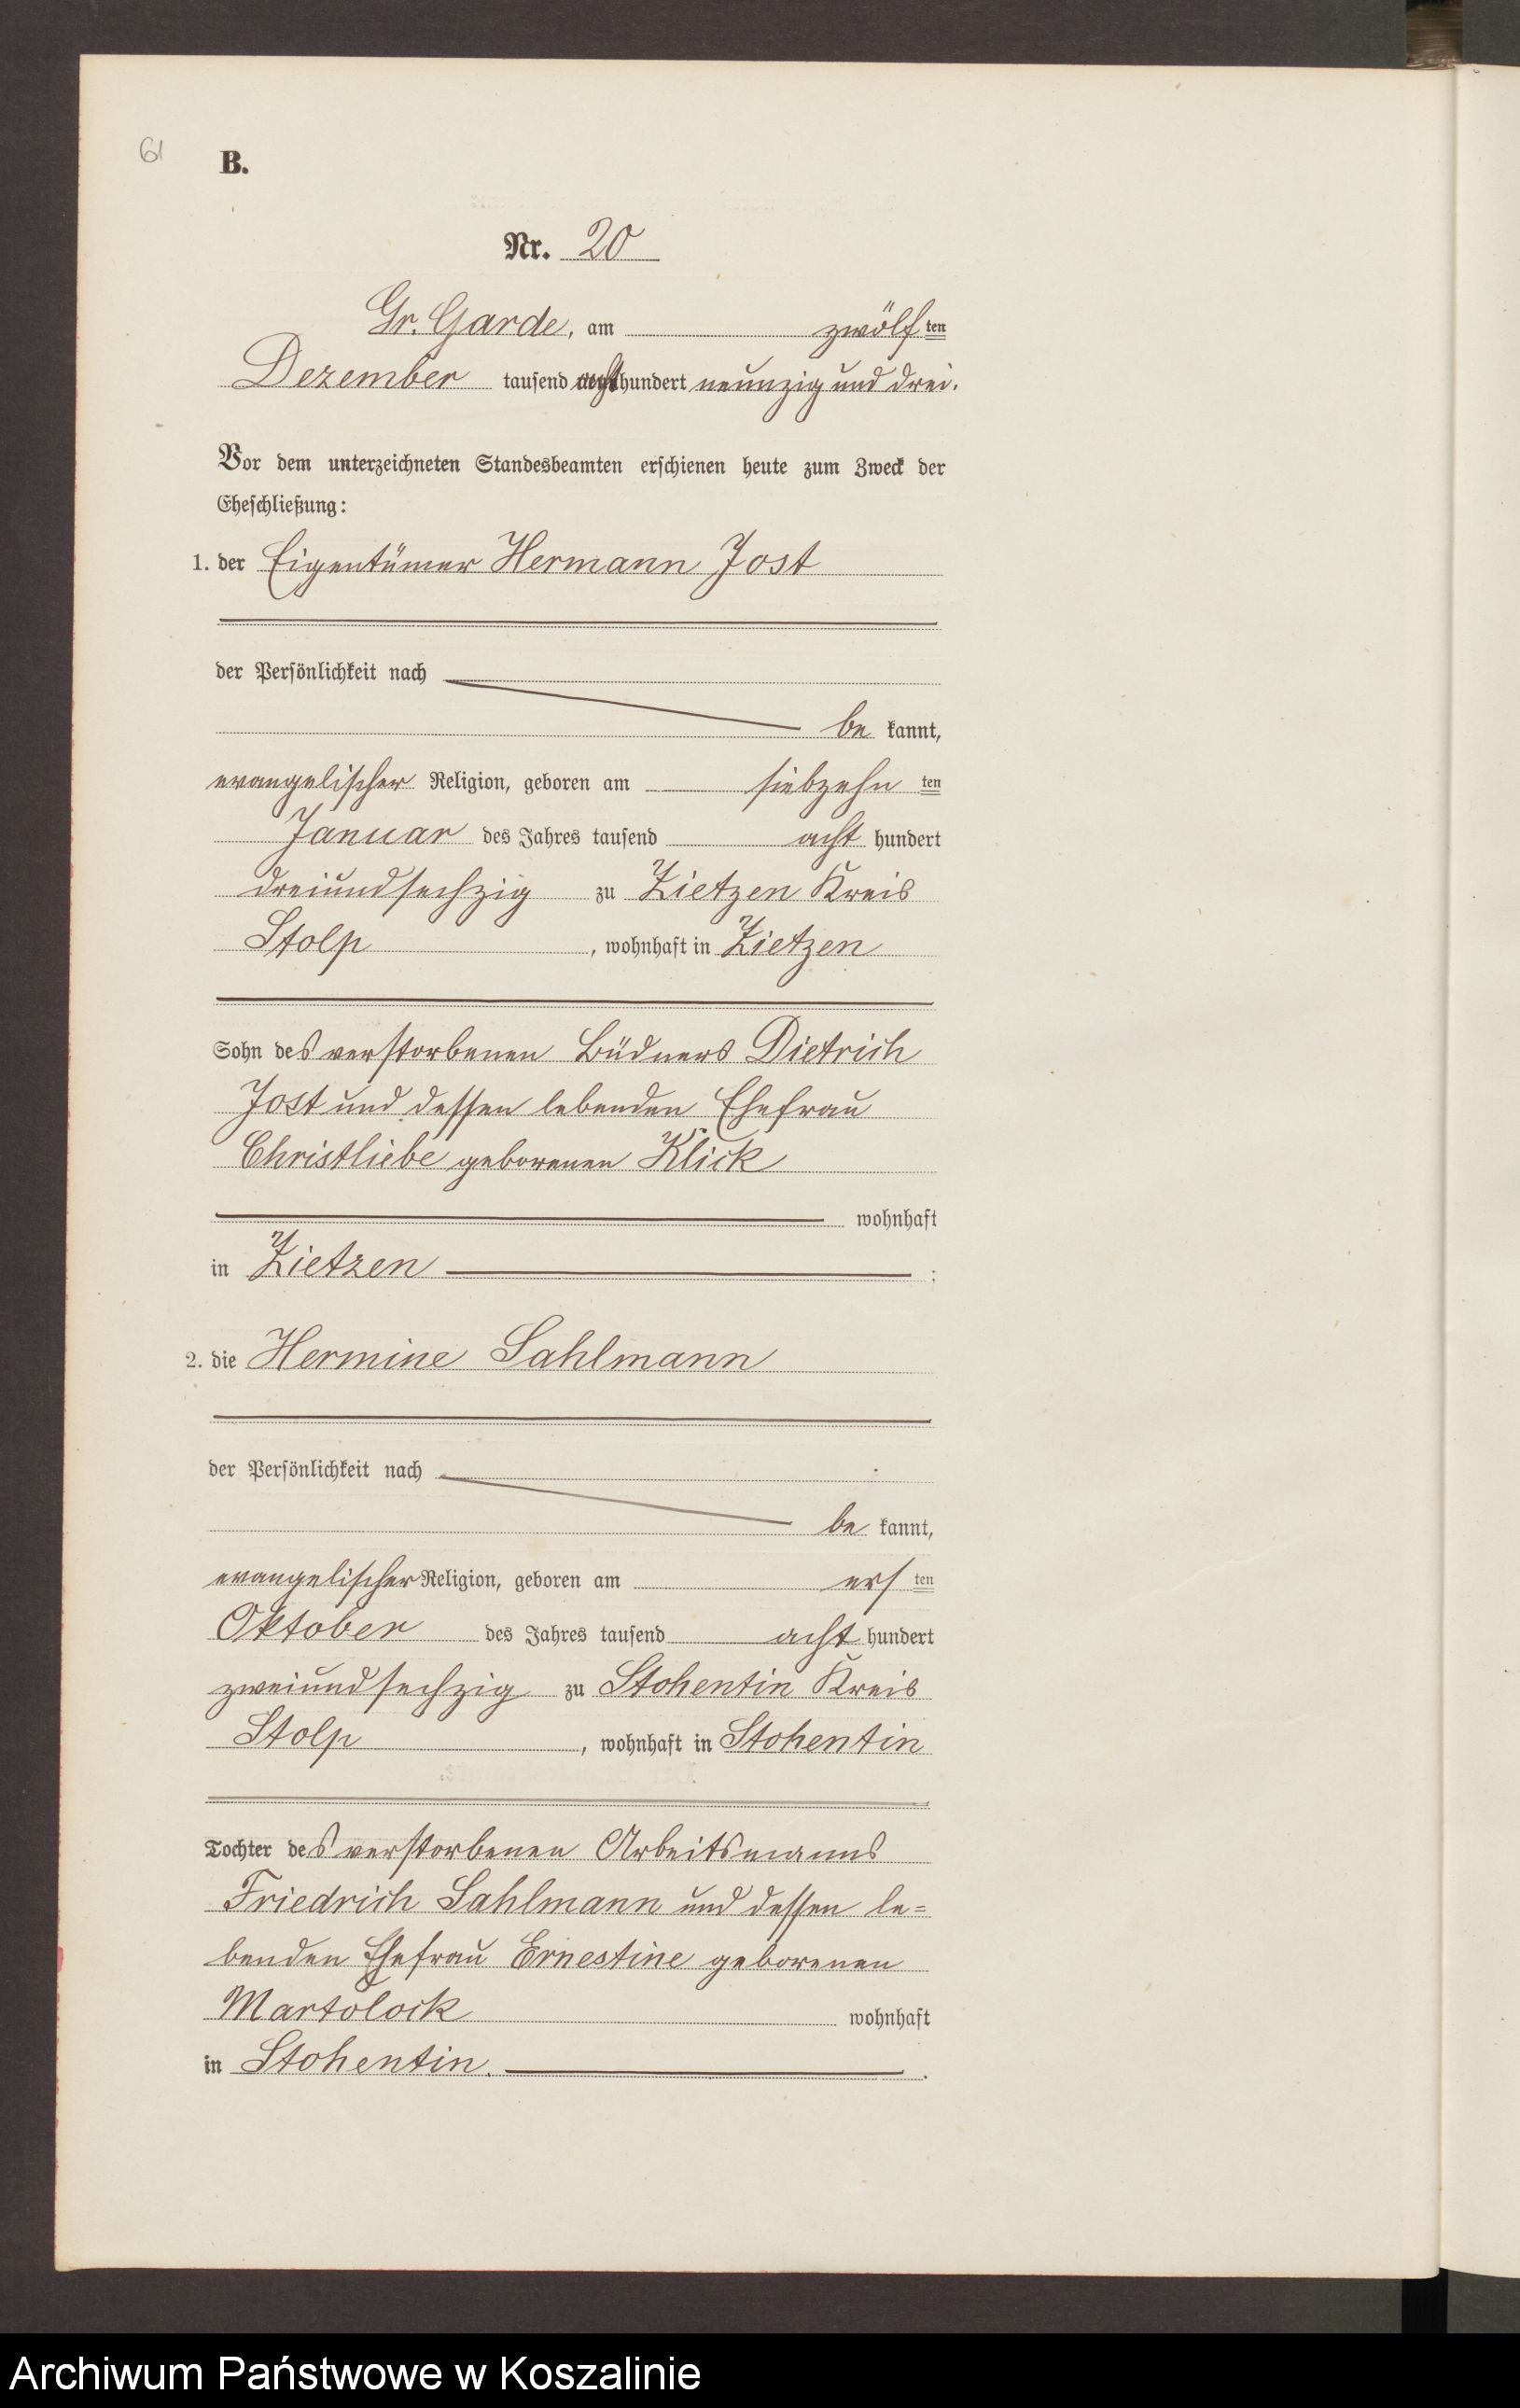 61
B.
Nr. 20
Gr. Garde, am zwölf ten
Dezember tausend acht hundert neunzig und drei.
Vor dem unterzeichneten Standesbeamten erschienen heute zum Zweck der
Eheschließung:
1. der Eigentümer Hermann Jost
der Persönlichkeit nach
be kannt,
evangelischer Religion, geboren am siebzehn ten
Januar des Jahres tausend acht hundert
dreiundsechzig zu Zietzen Kreis
Stolp, wohnhaft in Zietzen
Sohn des verstorbenen Büdners Dietrich
Jost und dessen lebenden Ehefrau
Christliebe geborenen Klick
wohnhaft
in Zietzen ;
2. die Hermine Sahlmann
der Persönlichkeit nach
be kannt,
evangelischer Religion, geboren am ers ten
Oktober des Jahres tausend acht hundert
zweiundsechzig zu Stohentin Kreis
Stolp, wohnhaft in Stohentin
Tochter des verstorbenen Arbeitsmanns
Friedrich Sahlmann und dessen le=
benden Ehefrau Ernestine geborenen
Martolock wohnhaft
in Stohentin.
Archiwum Państwowe w Koszalinie